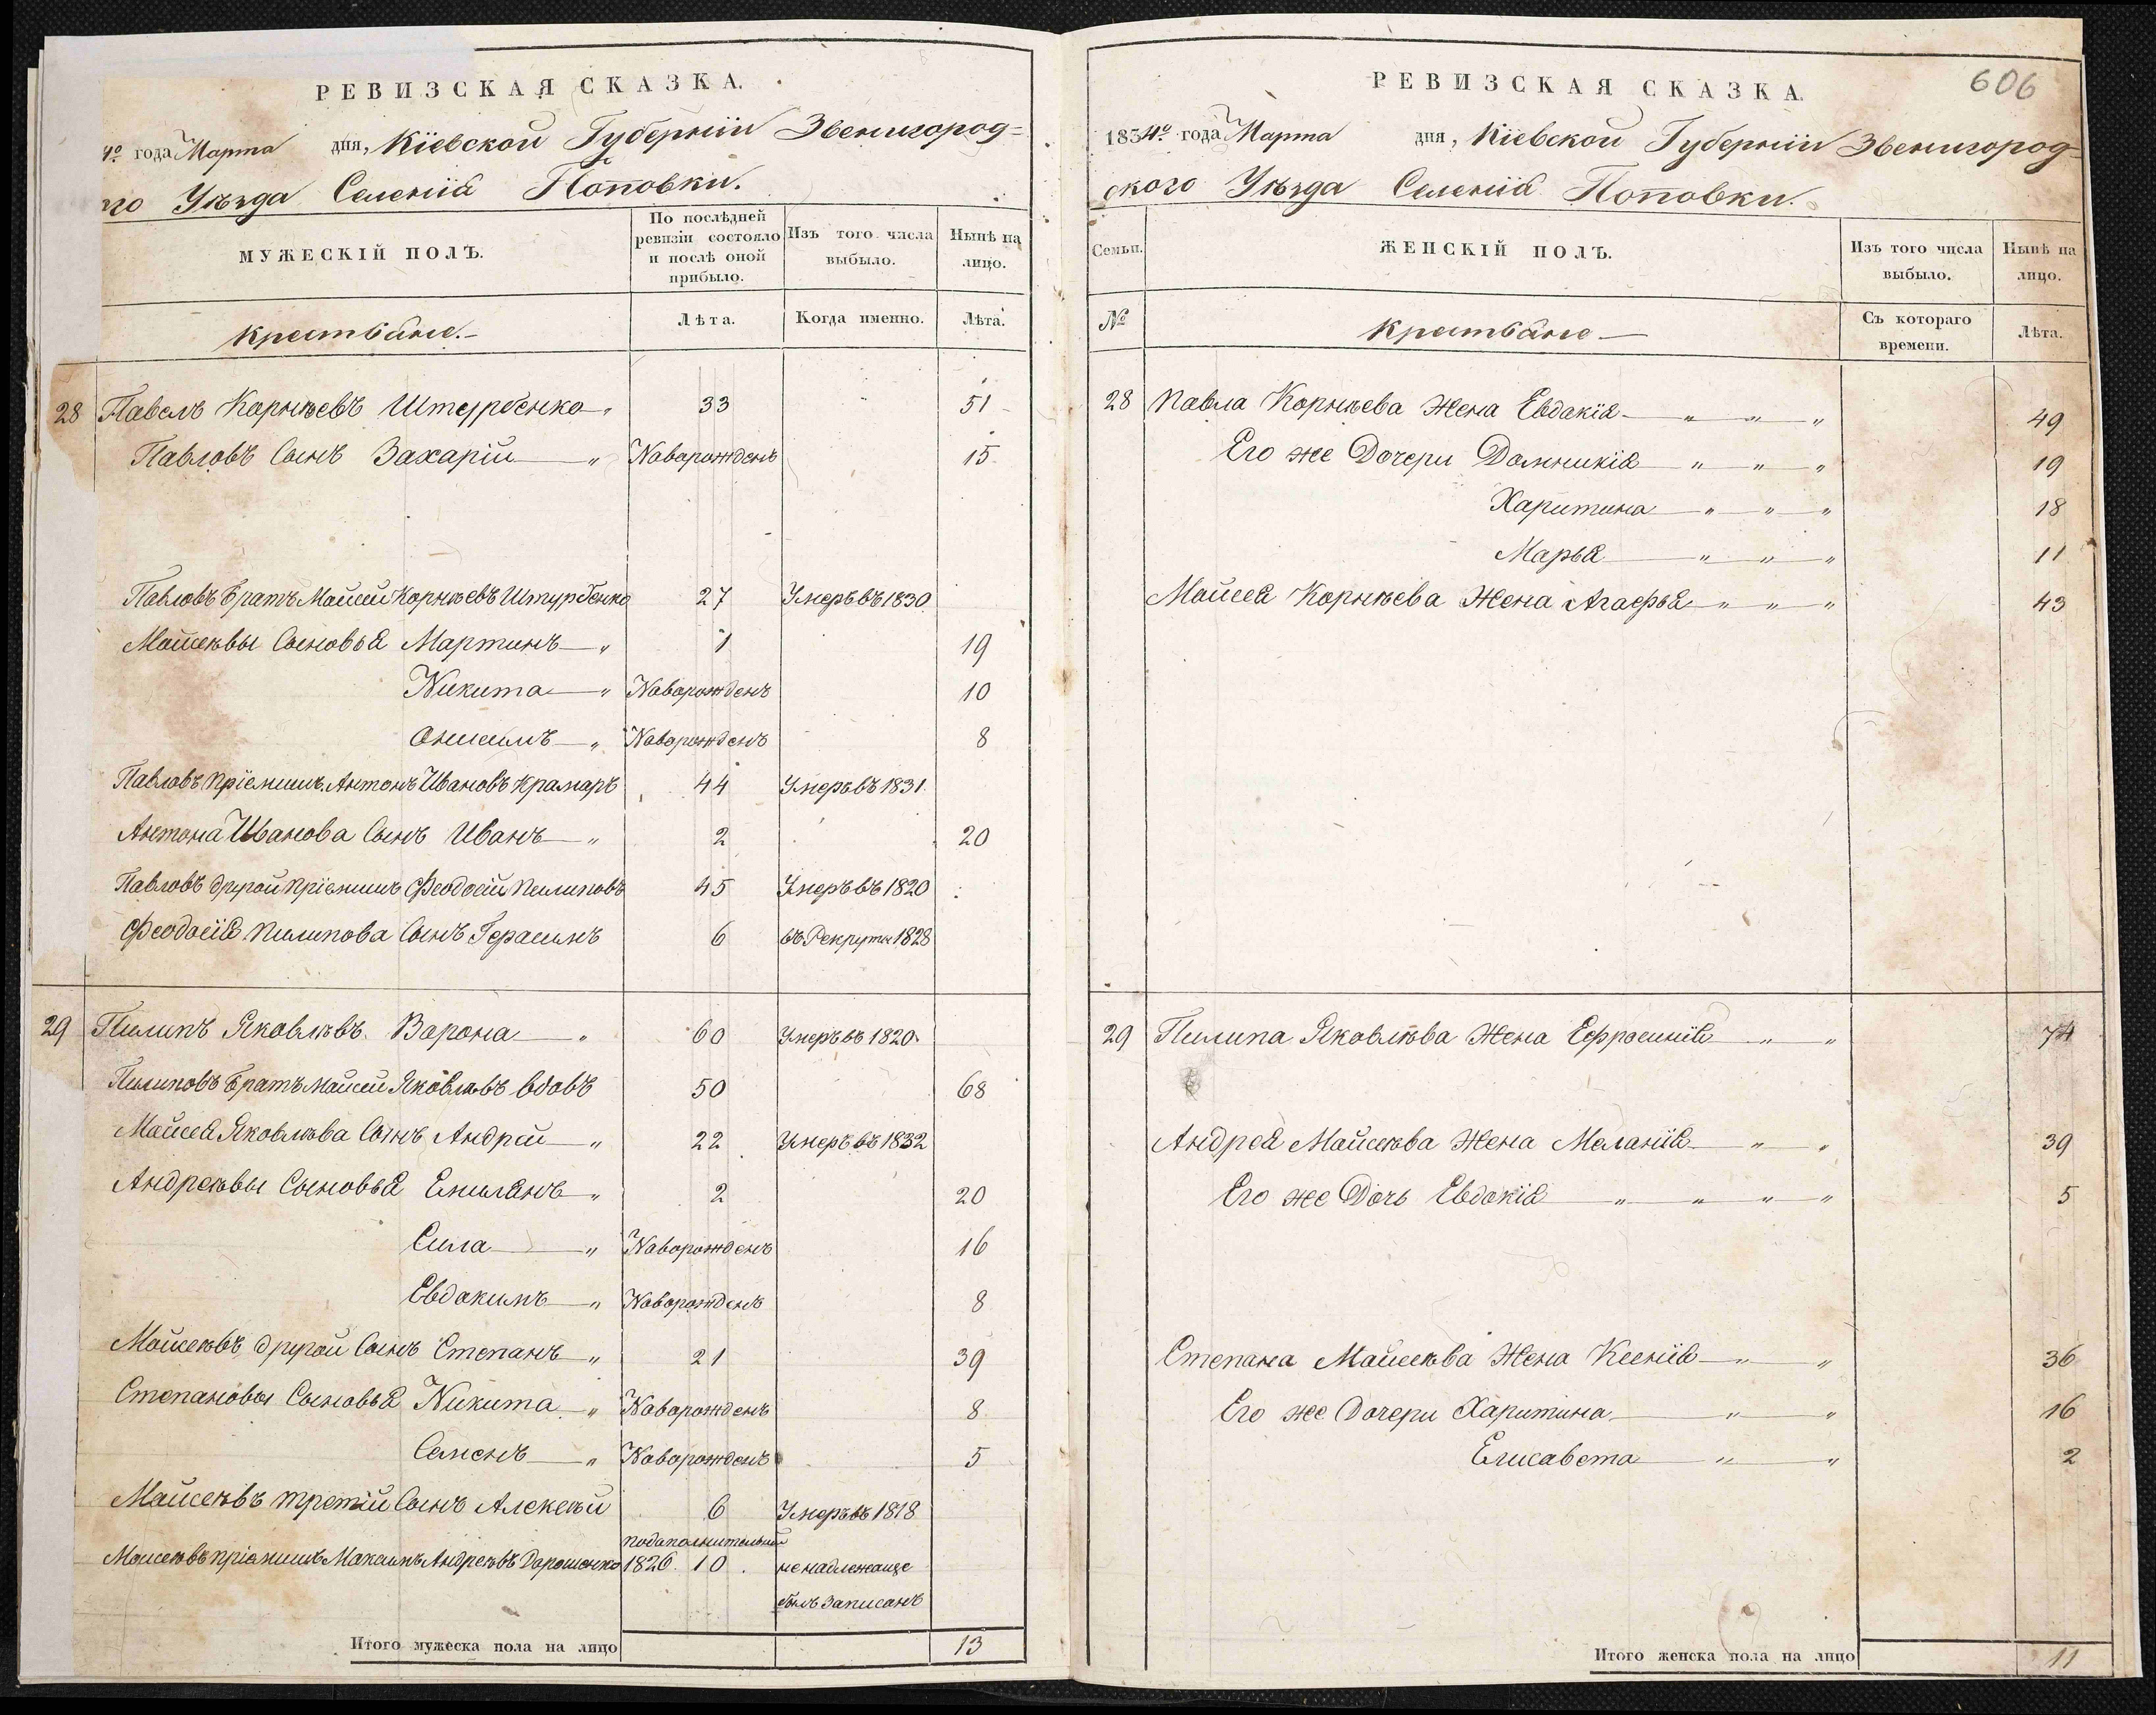 РЕВИЗСКАЯ СКАЗКА.
4го года Марта дня, Кіевской Губерніи Звенигород=
го Уѣзда Селенія Поповки.
МУЖЕСКІЙ ПОЛЪ.
По послѣдней ревизіи состояло и послѣ оной прибыло.
Изъ того числа выбыло.
Нынѣ на лицо.
крестьяне.
Лѣта.
Когда именно.
Лѣта.
28 Павелъ Корнѣевъ Штурбенко 33 51
Павловъ Сынъ Захарій Наварожденъ 15
Павловъ Братъ Мойсей Корнѣевъ Штурбенко 27 Умеръ въ 1830
Мойсеѣвы Сыновья Мартинъ 1 19
Никита Наварожденъ 10
Онисимъ Наварожденъ 8
Павловъ Пріемишъ Антонъ Ивановъ Крамаръ 44 Умеръ въ 1831.
Антона Иванова Сынъ Иванъ 2 20
Павловъ другой Пріемишъ Феодосій Пилиповъ 45 Умеръ въ 1820
Феодосія Пилипова Сынъ Герасимъ 6 въ Рекруты 1828
29 Пилипъ Яковлѣвъ Варона 60 Умеръ въ 1820.
Пилиповъ Братъ Мойсей Яковлѣвъ вдовъ 50 68
Мойсея Яковлѣва Сынъ Андрей 22 Умеръ въ 1832
Андреѣвы Сыновья Емилянъ 2 20
Сила Наварожденъ 16
Евдокимъ Наварожденъ 8
Мойсеѣвъ другой Сынъ Степанъ 21 39
Степановы Сыновья Никита Наварожденъ 8
Семенъ Наварожденъ 5
Мойсеѣвъ третій Сынъ Алексѣй 6 Умеръ въ 1818
подополнительной
Мойсеѣвъ пріемишъ Максимъ Андреѣвъ Дорошенко 1826. 10. ненадлежаще
былъ записанъ
Итого мужеска пола на лицо 13
606
РЕВИЗСКАЯ СКАЗКА.
1834го года Марта дня, Кіевской Губерніи Звенигород=
ского Уѣзда Селенія Поповки.
Семьи.
ЖЕНСКІЙ ПОЛЪ.
Изъ того числа выбыло.
Нынѣ на лицо.
№
крестьяне
Съ котораго времени.
Лѣта.
28 Павла Корнѣева Жена Евдакія 49
Его же Дочери Домникія 19
Харитина 18
Марья 11
Мойсея Корнѣева Жена Агафья 43
29 Пилипа Яковлѣва Жена Ефросинія 74
Андрея Мойсеѣва Жена Меланія 39
Его же Дочь Евдокія 5
Степана Мойсеѣва Жена Ксенія 36
Его же Дочери Харитина 16
Елисавета 2
Итого женска пола на лицо 11